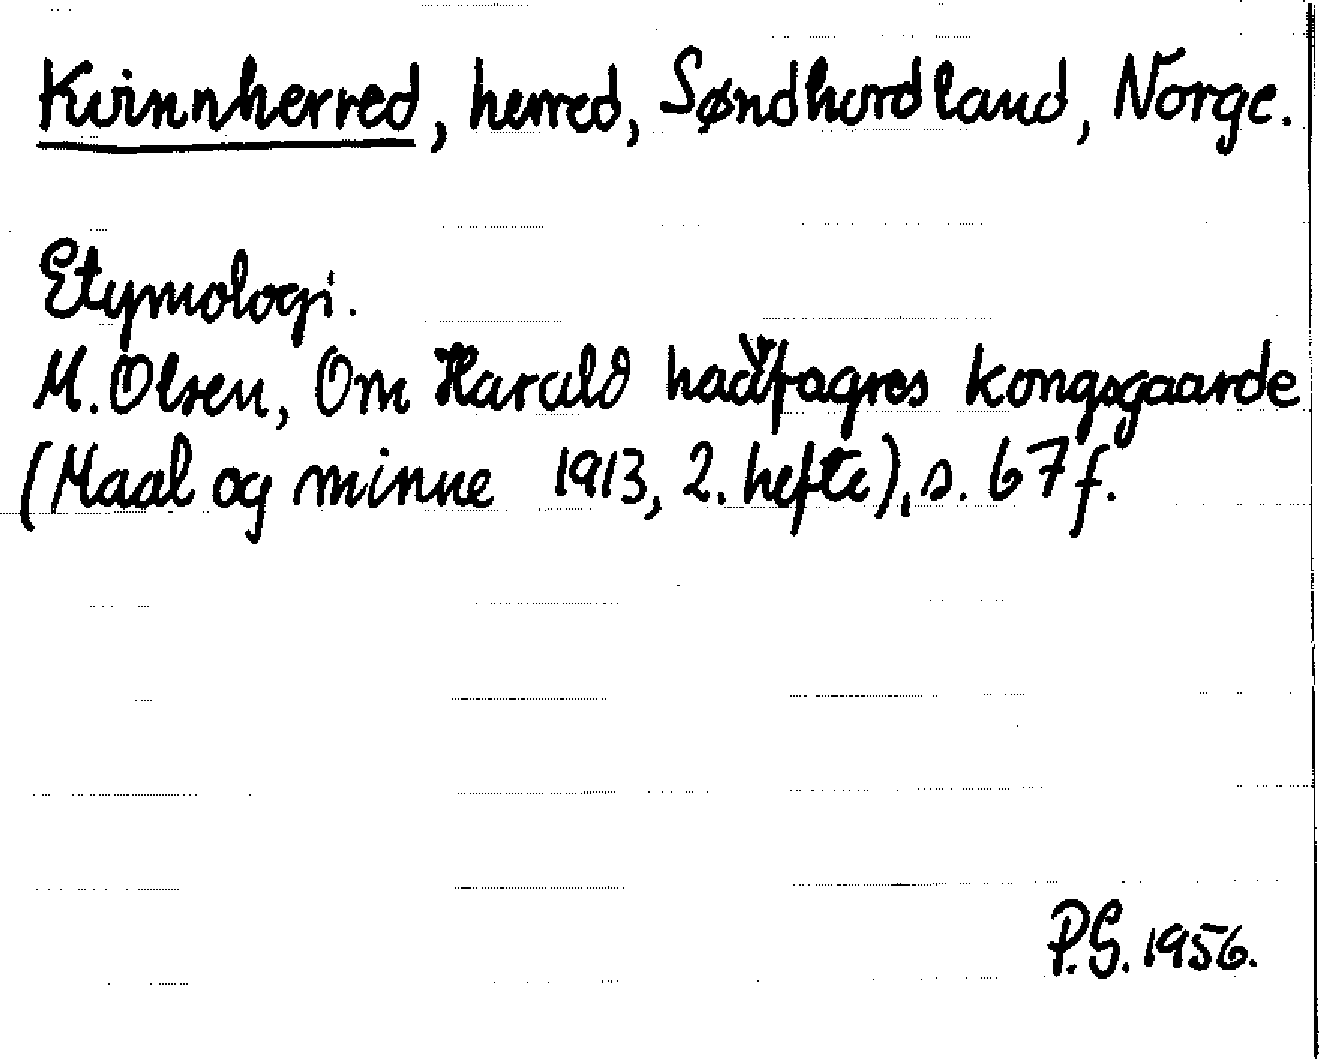 Kvinnherred, herred, Søndhordland, Norge.
Etymologi.
M. Olsen, Om Harald haarfagres kongsgaarde
(Maal og minne 1913, 2. hefte), s. 67 f.
P.S. 1956.